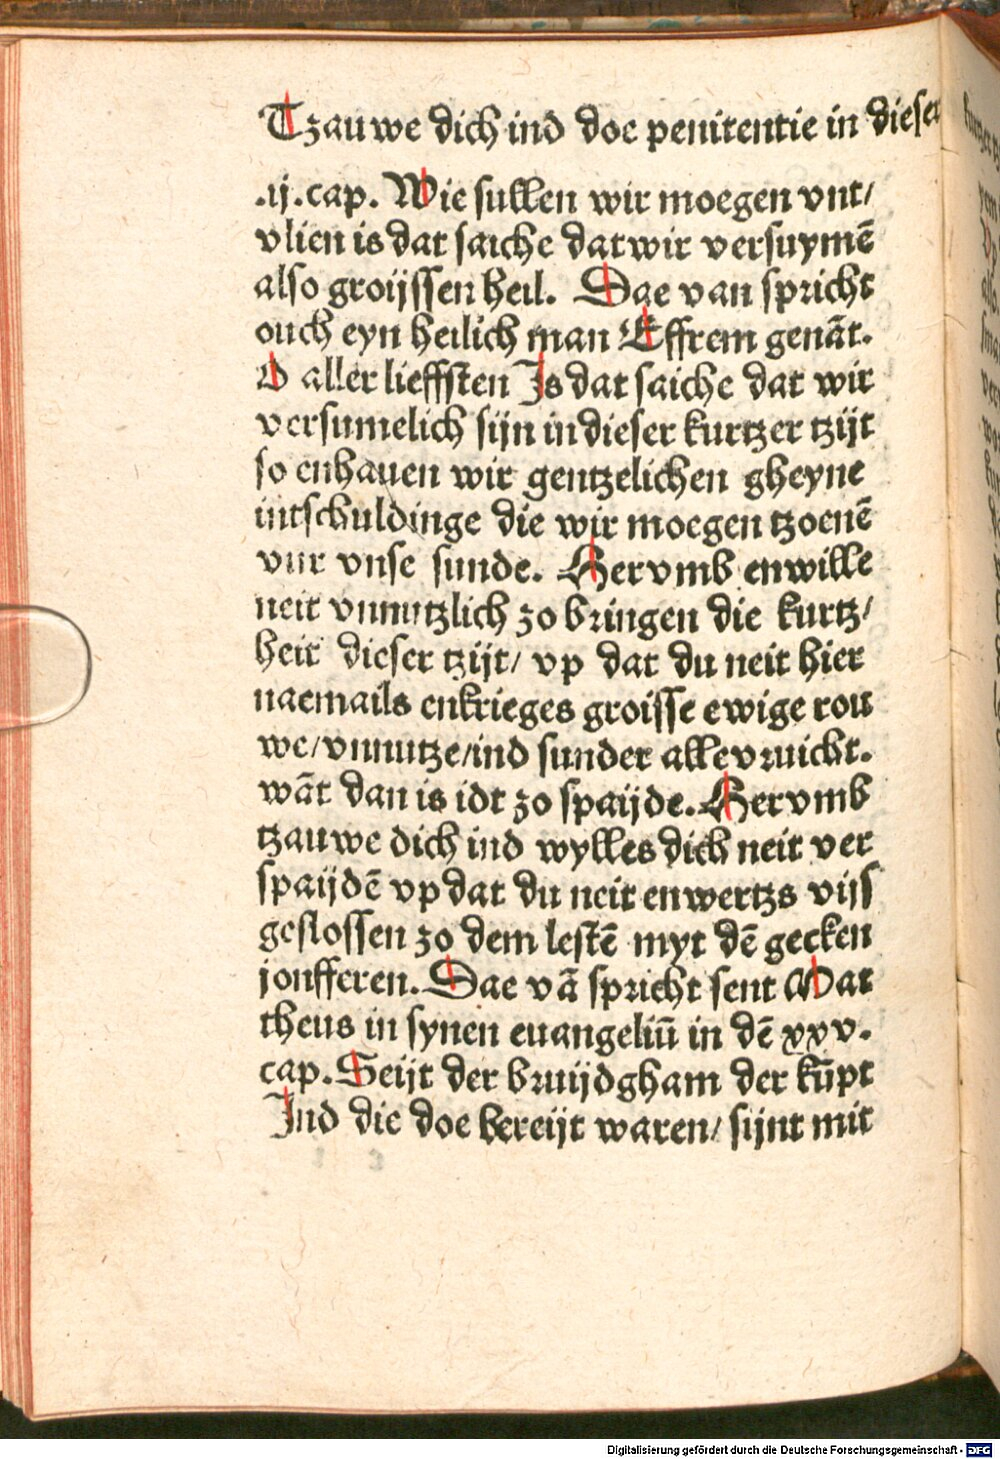 Tzauwe dich ind doe penitentie in dieser
.ij.cap. Wie sullen wir moegen vnt/
vlien is dat saiche dat wir versuymē
also groijssen heil. Dae van spricht
ouch eyn heilich man Effrem genāt.
O aller lieffsten Is dat saiche dat wir
versumelich sijn in dieser kurtzer tzijt
so enhauen wir gentzelichen gheyne
intschuldinge die wir moegen tzoenē
vur vnse sunde. Hervmb enwille
neit vnnutzlich zo bringen die kurtz/
heit dieser tzijt/ vp dat du neit hier
naemails enkrieges groisse ewige rou
we/vnnutze/ind sunder alle vruicht.
wāt dan is idt zo spaijde. Hervmb
tzauwe dich ind wylles dich neit ver
spaijdē vp dat du neit enwertzs vijs
geslossen zo dem lestē myt dē gecken
jonfferen. Dae vā spricht sent Mat
theus in synen euangeliū in dē xxv.
cap. Seijt der bruijdgham der kūpt
Ind die doe bereijt waren/ sijnt mit
Digitalisierung gefördert durch die Deutsche Forschungsgemeinschaft - DFG